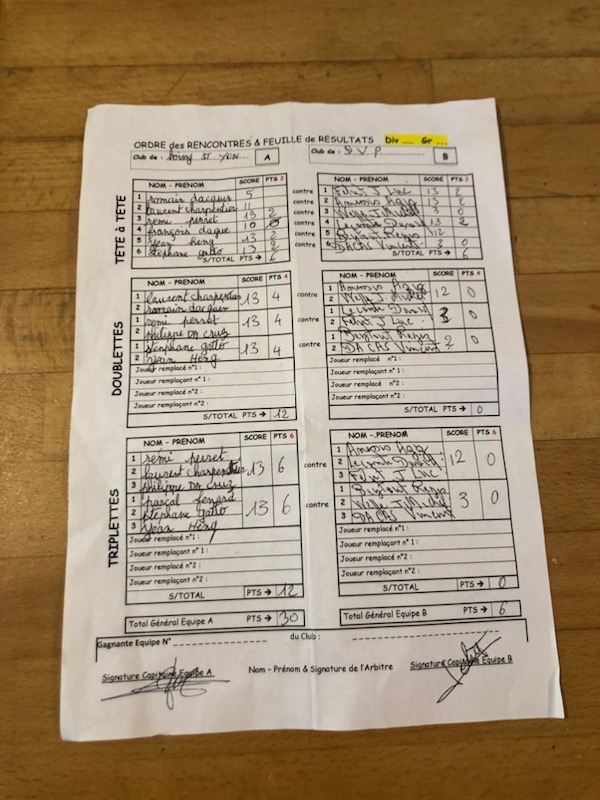 ORDRE des RENCONTRES & FEUILLE de RESULTATS Div ..... Gr ...
Club de : boissy ST YON A
Club de : S V P B
TÊTE à TÊTE
NOM - PRENOM SCORE PTS 2
1 romain dacquin 5
2 laurent charpentier 11
3 remi perret 13 2
4 françois daque 10 0
5 Jean Heng 13 2
6 stephane gatto 13 2
S/TOTAL PTS → 6
contre
contre
contre
contre
contre
contre
NOM - PRENOM SCORE PTS 2
1 J. Luc 13 2
2 13 2
3 3 0
4 13 2
5 12
6 DACAS Vincent 3 0
S/TOTAL PTS → 6
DOUBLETTES
NOM - PRENOM SCORE PTS 4
1 laurent charpentier 13 4
2 romain dacquin
1 remi perret 13 4
2 philippe DA CRUZ
1 stephane gatto 13 4
2 Jean Heng
Joueur remplacé n°1 :
Joueur remplaçant n°1 :
Joueur remplacé n°2 :
Joueur remplaçant n°2 :
S/TOTAL PTS → 12
contre
contre
contre
NOM - PRENOM SCORE PTS 4
1 12 0
2
1 3 0
2 J. Luc
1 2 0
2 DACAS Vincent
Joueur remplacé n°1 :
Joueur remplaçant n°1 :
Joueur remplacé n°2 :
Joueur remplaçant n°2 :
S/TOTAL PTS → 0
TRIPLETTES
NOM - PRENOM SCORE PTS 6
1 remi perret
2 laurent charpentier 13 6
3 philippe DA CRUZ
1 pascal penard
2 stephane gatto 13 6
3 Jean Heng
Joueur remplacé n°1 :
Joueur remplaçant n°1 :
Joueur remplacé n°2 :
Joueur remplaçant n°2 :
S/TOTAL PTS → 12
contre
contre
NOM - PRENOM SCORE PTS 6
1
2 12 0
3 J. Luc
1
2 3 0
3 DACAS Vincent
Joueur remplacé n°1 :
Joueur remplaçant n°1 :
Joueur remplacé n°2 :
Joueur remplaçant n°2 :
S/TOTAL PTS → 0
Total Général Equipe A PTS → 30
Total Général Equipe B PTS → 6
Gagnante Equipe N° du Club :
Signature Capitaine Equipe A
Nom - Prénom & Signature de l'Arbitre
Signature Capitaine Equipe B